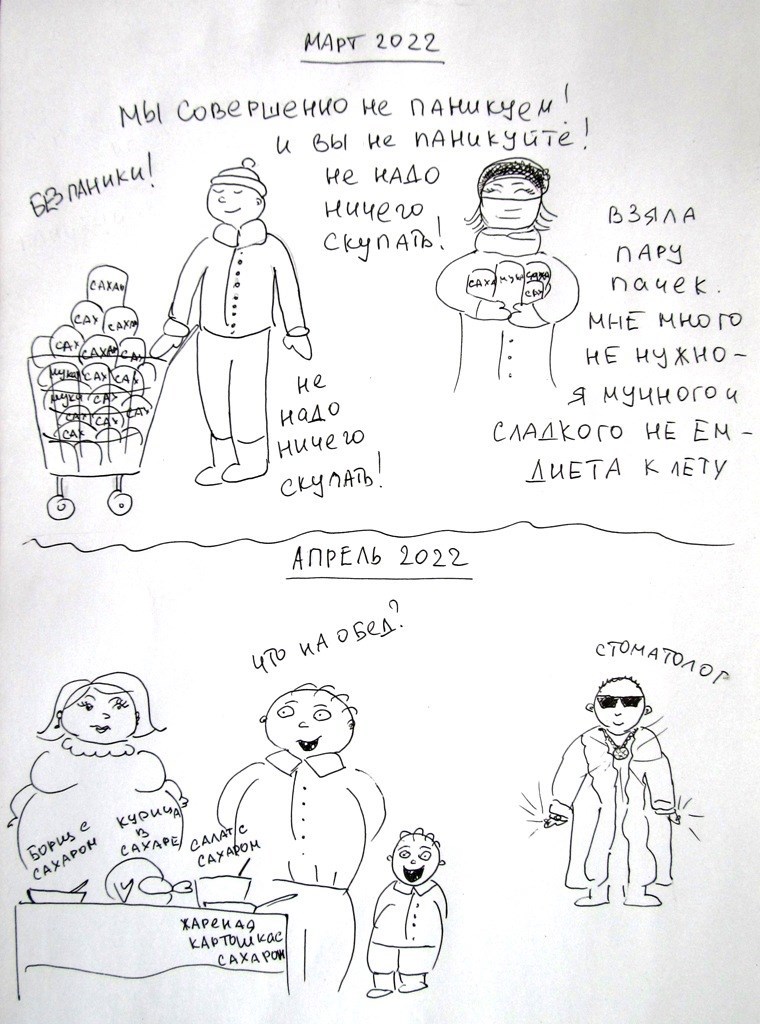 МАРТ 2022
МЫ СОВЕРШЕННО НЕ ПАНИКУЕМ!
И ВЫ НЕ ПАНИКУЙТЕ!
БЕЗ ПАНИКИ!
НЕ НАДО
НИЧЕГО
СКУПАТЬ!
ВЗЯЛА
ПАРУ
ПАЧЕК.
МНЕ МНОГО
НЕ НУЖНО –
Я МУЧНОГО И
СЛАДКОГО НЕ ЕМ –
ДИЕТА К ЛЕТУ
САХА
МУК
САХА
САХ
САХАР
САХ
САХАР
САХ
САХАР
САХ
МУКА
САХ
САХ
МУКА
САХ
САХ
САХ
САХ
САХ
НЕ
НАДО
НИЧЕГО
СКУПАТЬ!
АПРЕЛЬ 2022
ЧТО НА ОБЕД?
СТОМАТОЛОГ
БОРЩ С
САХАРОМ
КУРИЦА
В
САХАРЕ
САЛАТ С
САХАРОМ
ЖАРЕНАЯ
КАРТОШКА С
САХАРОМ